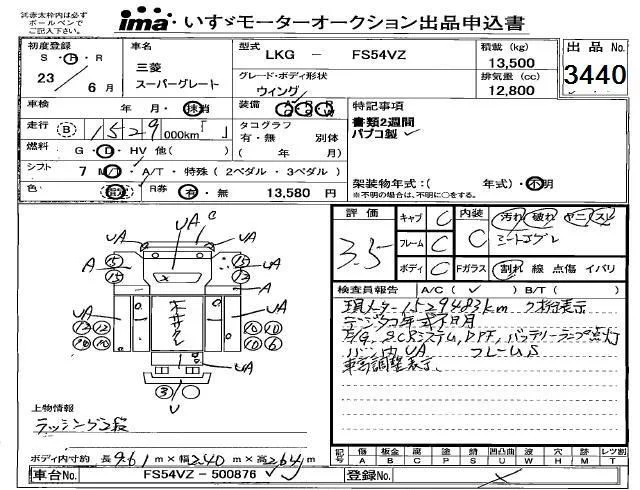 ※赤太枠内は必ず
ボールペンで
ご記入下さい。
ima・いすゞモーターオークション出品申込書
初度登録
S・H・R
23 6月
車名
三菱
スーパーグレート
型式
LKG - FS54VZ
グレード・ボディ形状
ウィング
積載 (kg)
13,500
排気量 (cc)
12,800
出品 No.
3440
車検 年 月・抹消
装備
特記事項
書類2週間
パブコ製
走行 (B) 1529 000km
タコグラフ
有・無 別体
( 年 月)
燃料 G・D・HV 他( )
シフト 7 M/T・A/T・特殊 (2ペダル・3ペダル)
架装物年式:( 年式)・不明
※不明の場合は、不明に○をする。
色 R券 有・無 13,580 円
評価
3.5
キャブ C
フレーム C
ボディ C
内装 C
汚れ 破れ ヤニ スレ
Fガラス 割れ 線 点傷 イバリ
検査員報告 A/C( ✓ ) B/T( )
現メーター1529483km 7桁表示
E/G, SCRシステム, DPF, バッテリーランプ点灯
車高調整表示.
UA
C
A
UA
⑮
⑬
A
UA
UA
⑫⑫
⑩⑩
UA
③
U
上物情報
ラッシング2段
ボディ内寸約 長961m×幅240m×高264m
記号
傷 A
板金 B
腐 C
塗 P
錆 S
凹凸曲 U
波 W
穴 H
汚 M
レツ割 T
車台No. FS54VZ - 500876 ✓
登録No.